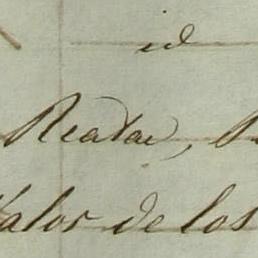 id
Reatae,
Valor de los